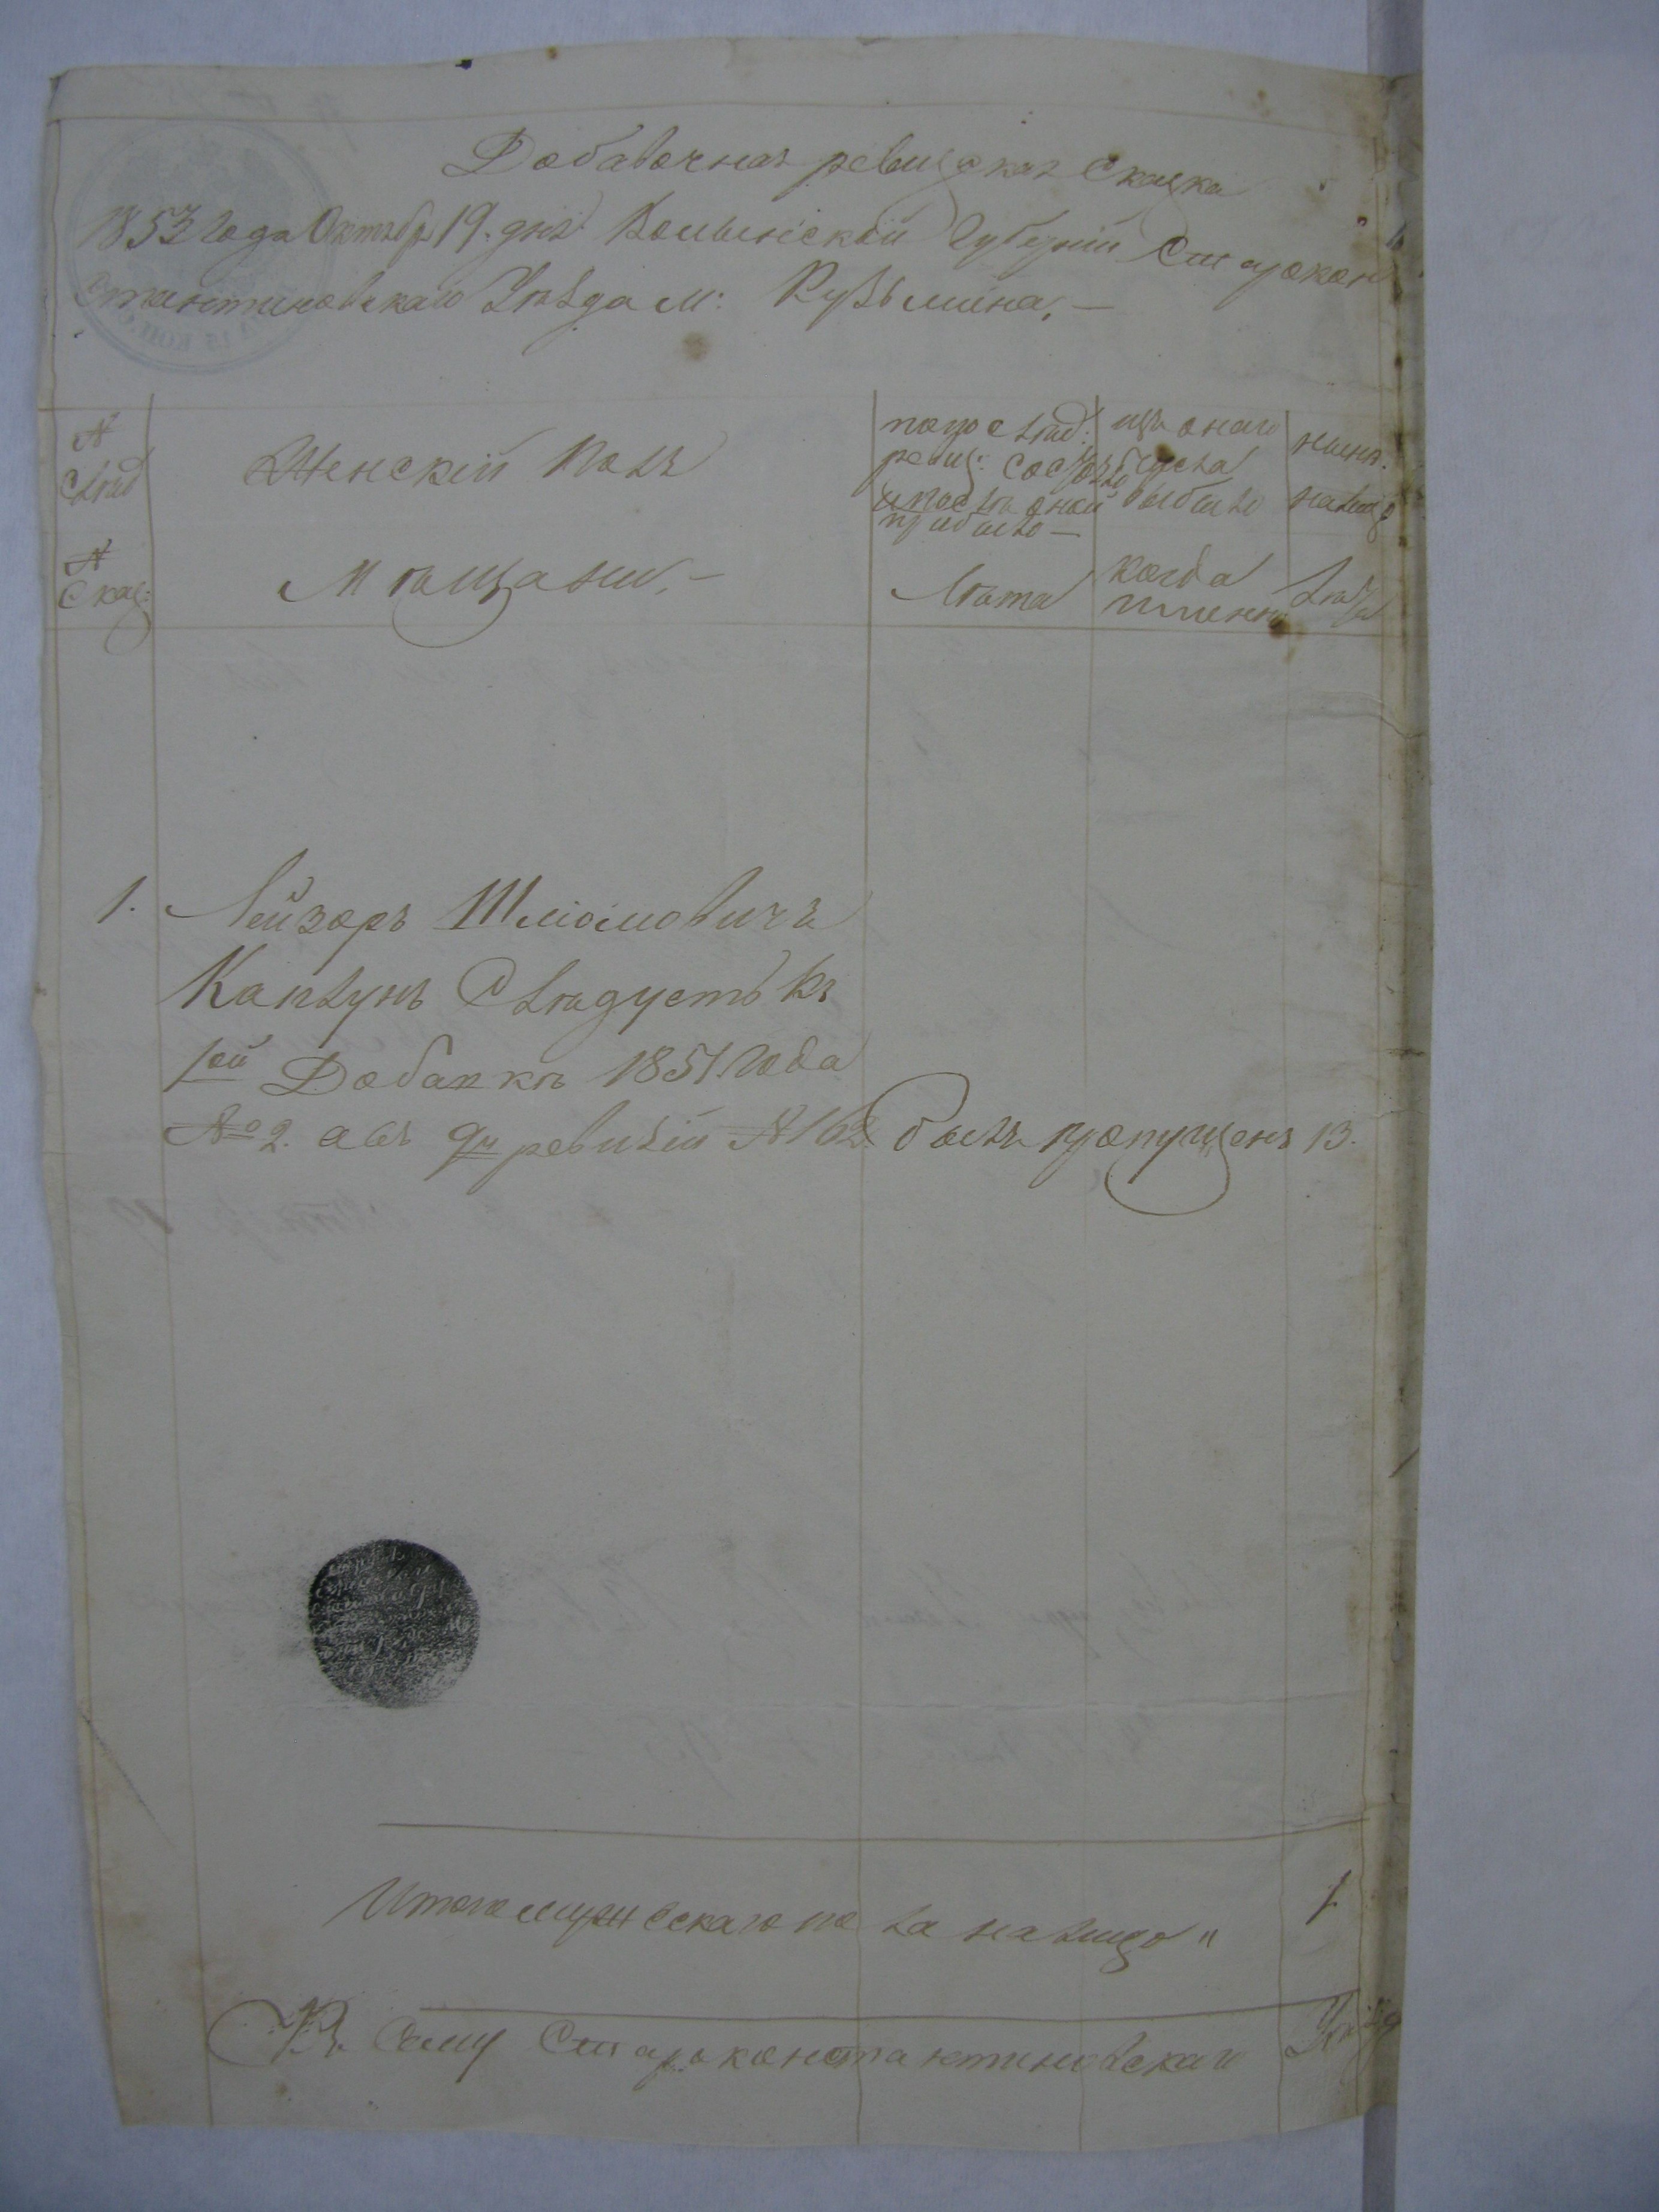 Добавочная ревизская Сказка
1853 года Октября 19. дня Волынской Губерніи Старокон
стантиновскаго Уѣзда м: Кузьмина, —
№
Слѣд
Женскій Полъ
по послѣд: ревиз: состояло
и послѣ оной прибыло —
изъ онаго числа
выбыло
нынѣ.
налицо
№
Сказ:
Мѣщани, —
Лѣта
когда
имянно
Лѣта
1. Лейзоръ Шліомовичъ
Каплунъ Слѣдуетъ къ
1ой Добавкѣ 1851. года
№ 2. а въ 9ю ревизій № 162 былъ пропущенъ 13.
Итого мужескаго пола налицо " 1
Къ Сему Староконстантиновскаго Уѣзда